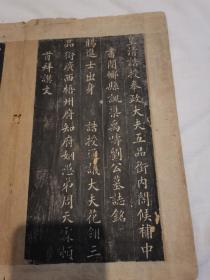 皇清誥授奉政大夫五品銜內閣候補中
書閿鄉縣訓導禹襄劉公墓誌銘
賜進士出身　誥授通議大夫花翎三
品銜廣西梧州府知府如弟周天霖頓
首拜撰文